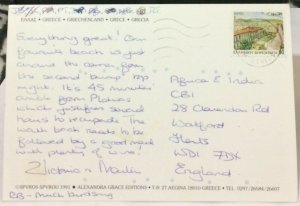 ΕΛΛΑΣ • GREECE • GRIECHENLAND • GRECE • GRECIA
Everything great! Our
favourite beach is just
around the corner from
the second 'bump' top
right. It's 45 minutes
amble from Plakias
which justifies several
hours to recuperate. The
walk back needs to be
followed by a good meal
with plenty of wine!
Martin
PB - Much birdsong
CB1
28 Clarendon Rd
Watford
Herts
WD1 7DX
England
©SPYROS SPYROU 1991 • ALEXANDRA GRACE EDITIONS • T.Θ 27 AEGINA 18010 GREECE • TEL. 0297/26584/26607